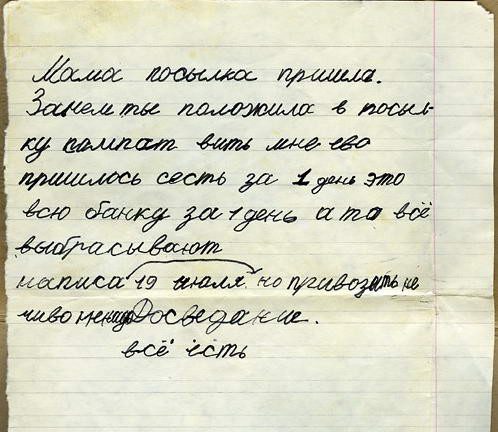 Мама посылка пришла.
Зачем ты положила в посыл-
ку компат вить мне ево
пришлось сесть за 1 день это
всю банку за 1 день а то всё
выбрасывают
написа 19 июля но привозить не
чиво ненадо Досведание.
всё есть